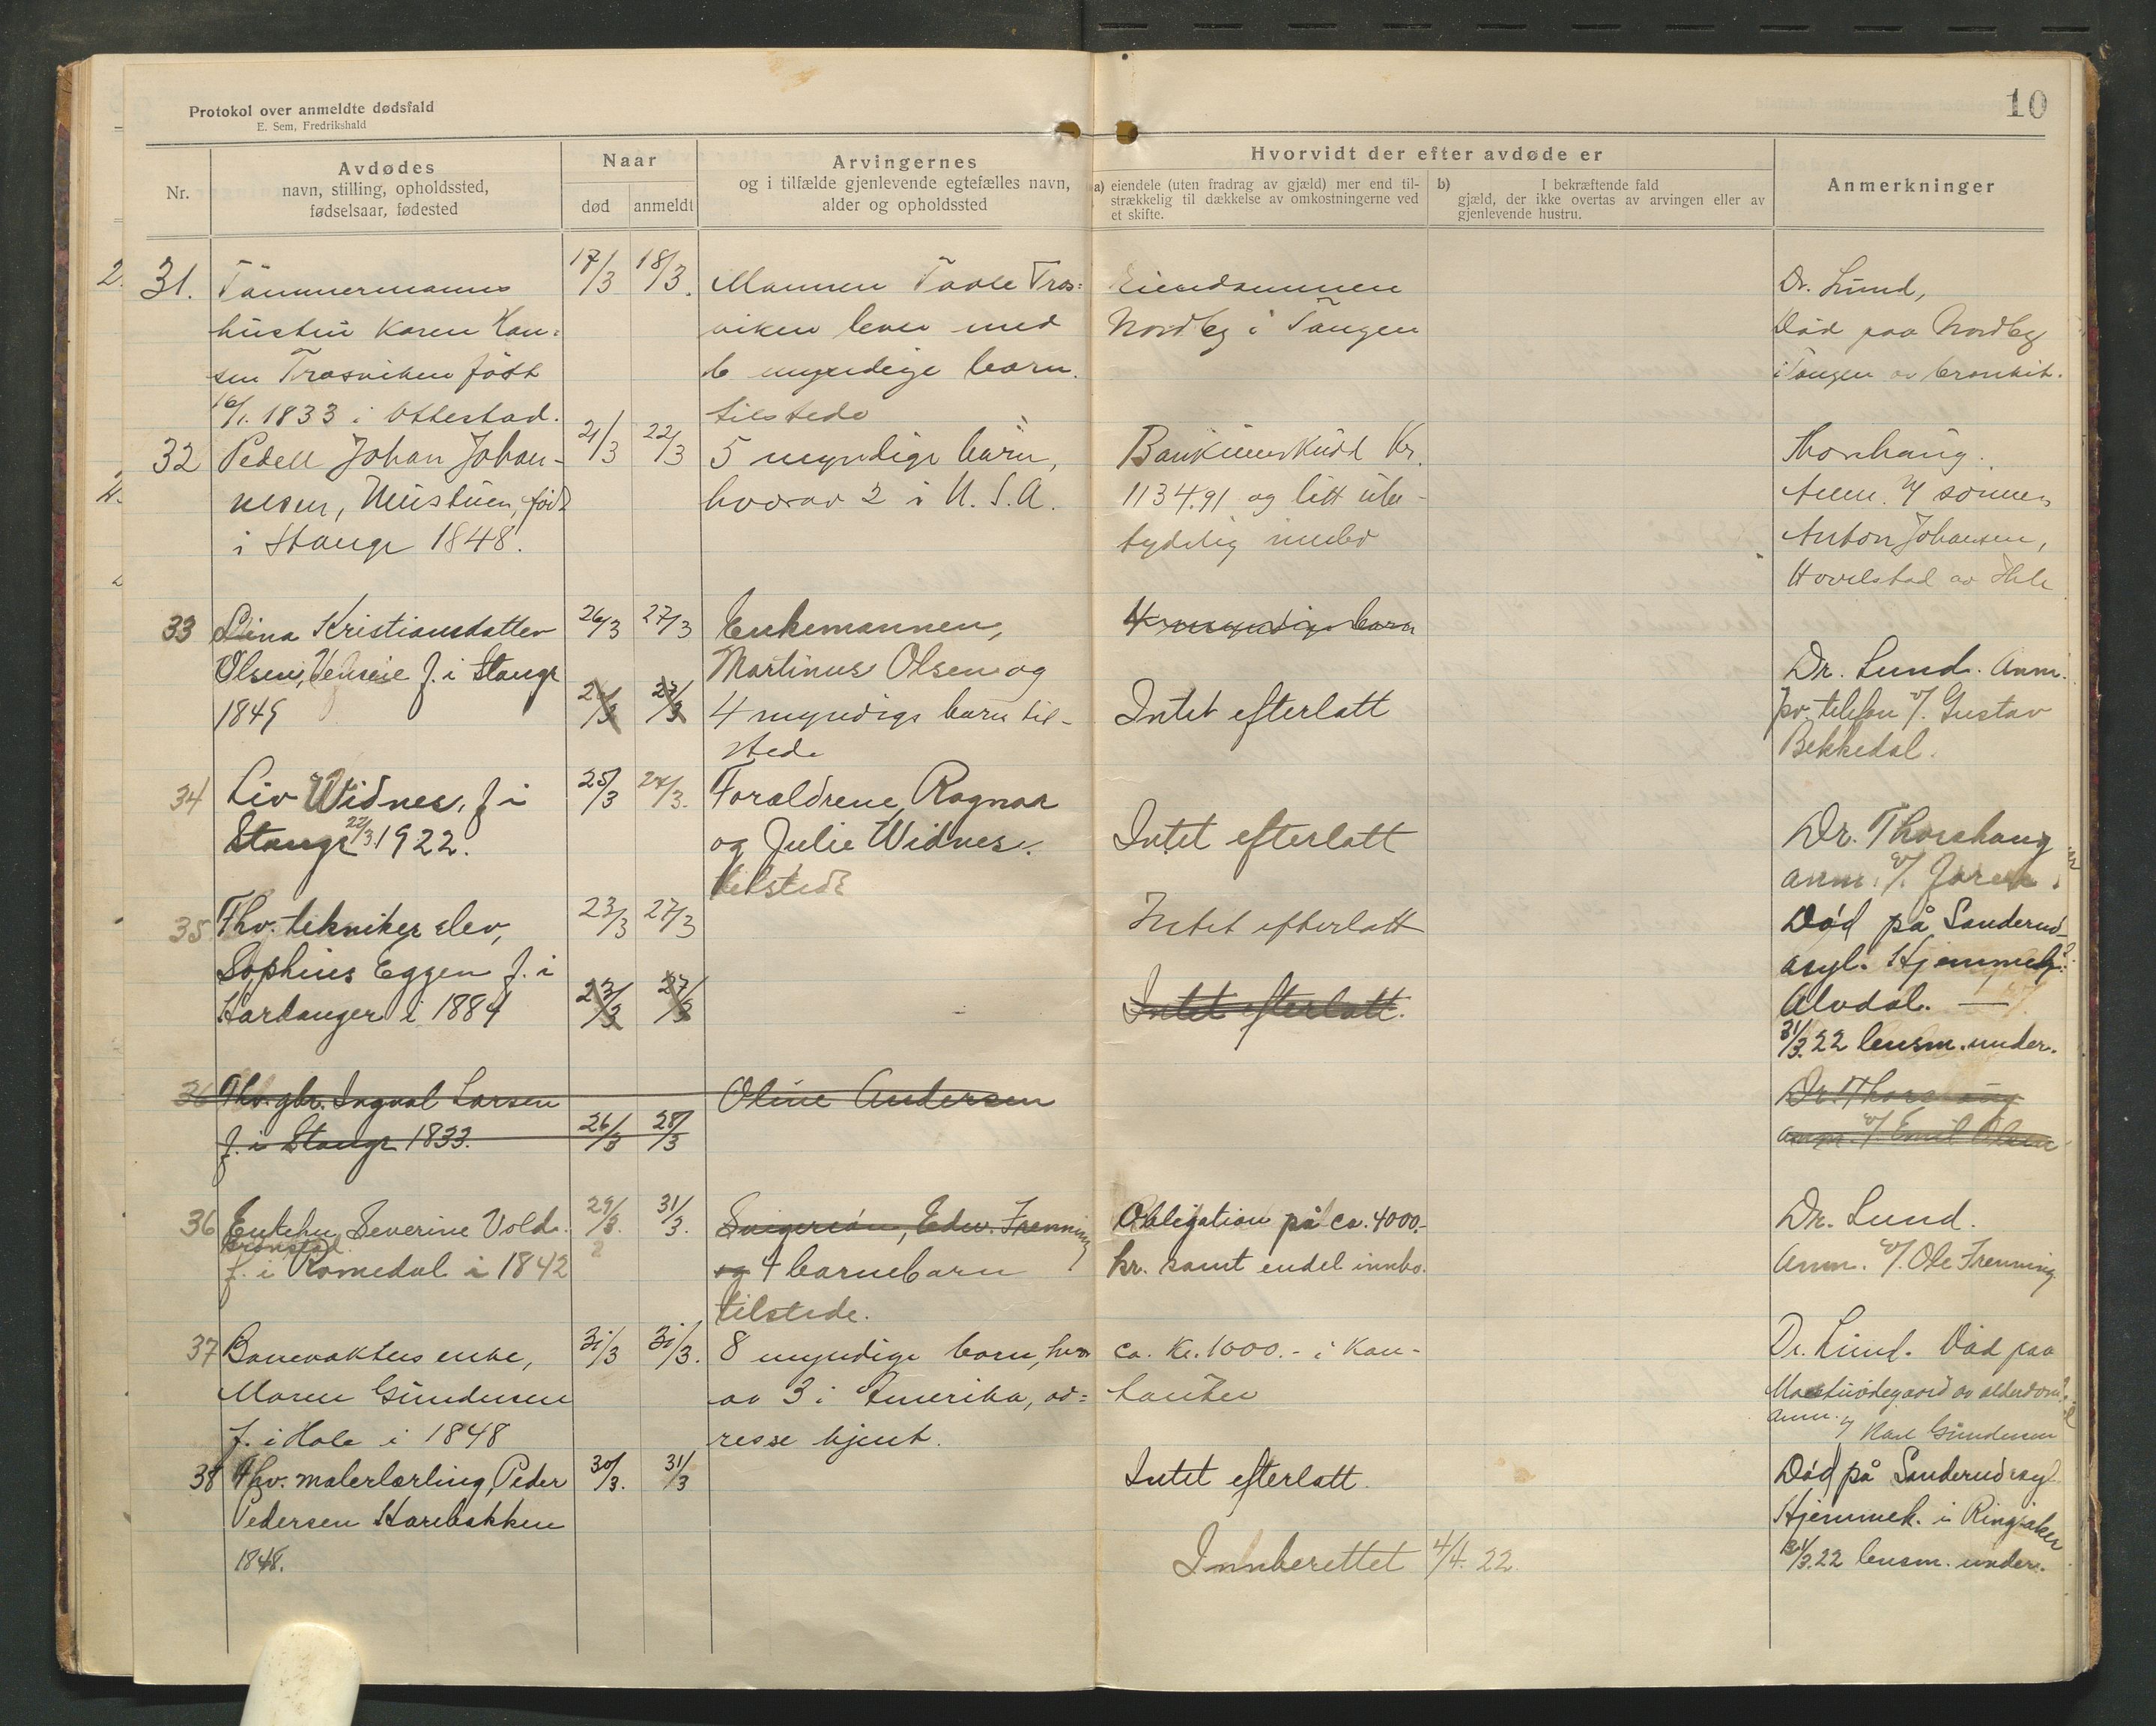 Protokol over anmeldte dødsfald
E. Sem, Fredrikshald
10
Nr.
Avdødes
navn, stilling, opholdssted,
fødselsaar, fødested
Naar
død
anmeldt
Arvingernes
og i tilfælde gjenlevende egtefælles navn,
alder og opholdssted
Hvorvidt der efter avdøde er
a) eiendele (uten fradrag av gjæld) mer end til-
strækkelig til dækkelse av omkostningerne ved
et skifte.
b) I bekræftende fald
gjæld, der ikke overtas av arvingen eller av
gjenlevende hustru.
Anmerkninger
31.
Tømmermanns
hustru Karen Han-
sen Trosviken født
1833 i Ottestad.
17/3
18/3.
Mannen Paale Tros-
viken lever med
6 myndige barn
tilstede
Eiendommen
Nordby i Tangen
Dr. Lund,
Død paa Nordby
i Tangen av bronkit.
32
Pedell Johan Johan-
nesen, født
i Stange 1848.
21/3
22/3
5 myndige barn,
hvorav 2 i U.S.A.
Bankinnskudd Kr.
1134.91 og litt ube-
tydelig innbo
Thorshaug.
Anm. v/ sønnen
Anton Johansen,
33
Lina Kristiansdatter
Olsen, f. i Stange
1849
26/3
27/3
26/3
27/3
Enkemannen,
Martinus Olsen og
4 myndige barn til-
stede
4 myndige barn
Intet efterlatt
Dr. Lund. Anm.
pr. telefon v/. Gustav
Bekkedal.
34
Liv Widnes, f i
Stange 22/3 1922.
25/3
27/3.
Forældrene, Ragnar
og Julie Widnes.
tilstede
Intet efterlatt
Dr. Thorshaug
anm. v/.
35
Fhv. tekniker elev,
Sophus Eggen f. i
Hardanger i 1884
23/3
27/3
23/3
27/3
Intet efterlatt
Intet efterlatt.
Død på Sanderud
asyl. Hjemmeh.
Alvdal.
31/3.22 lensm. under.
36
Fhv. gbr. Ingval Larsen
f. i Stange 1833.
26/3
28/3
Oline Andersen
Dr. Thorshaug
anm. v/. Emil Olsen
36
Enkefru Severine Vold
Grønstad.
f. i Romedal i 1842
29/3.
31/3.
Svigersøn, Edv. Frenning
og 4 barnebarn
tilstede.
Obligation på ca. 4000.-
kr. samt endel innbo.
Dr. Lund.
Anm. v/. Ole Frenning
37
Banevokters enke,
Maren Gundersen
f. i Hole i 1848
31/3
31/3.
8 myndige barn, hvor
av 3 i Amerika, ad-
resse kjent.
ca. Kr. 1000.- i Kon-
tanter
Dr. Lund. Død paa
av alderdom
anm. v/ Karl Gundersen
38
Fhv. malerlærling, Peder
Pedersen Harebakken
1848.
30/3.
31/3
Intet efterlatt.
Død på Sanderud asyl
Hjemmeh. i Ringsaker
31/3.22 lensm. under.
Innberettet 4/4. 22.